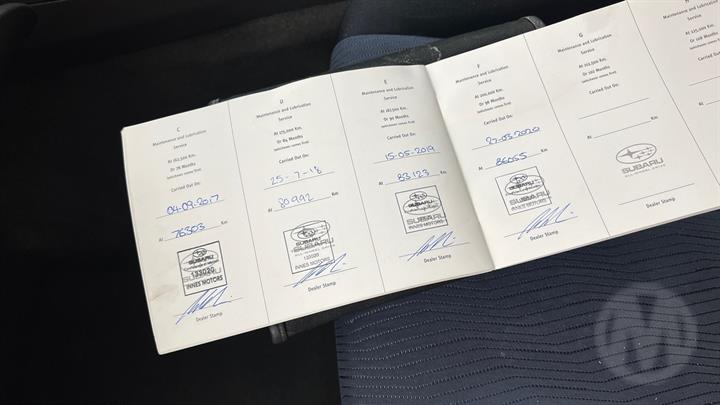 C
Maintenance and Lubrication
Service
At 162,500 Km.
Or 78 Months
(whichever comes first)
Carried Out On:
04-09-2017
At 76303 Km
SUBARU
133020
INNES MOTORS
Dealer Stamp
D
Maintenance and Lubrication
Service
At 175,000 Km.
Or 84 Months
(whichever comes first)
Carried Out On:
25-7-18
At 80992 Km
SUBARU
133020
INNES MOTORS
Dealer Stamp
E
Maintenance and Lubrication
Service
At 187,500 Km.
Or 90 Months
(whichever comes first)
Carried Out On:
15-05-2019
At 83123 Km
SUBARU
INNES MOTORS
Dealer Stamp
F
Maintenance and Lubrication
Service
At 200,000 Km.
Or 96 Months
(whichever comes first)
Carried Out On:
27-03-2020
At 86055 Km
SUBARU
INNES MOTORS
Dealer Stamp
G
Maintenance and Lubrication
Service
At 212,500 Km.
Or 102 Months
(whichever comes first)
Carried Out On:
At Km
SUBARU
ALL-WHEEL DRIVE
Dealer Stamp
H
Maintenance and
Service
At 225,000 Km.
Or 108 Months
(whichever comes first)
Carried Out On:
At
M